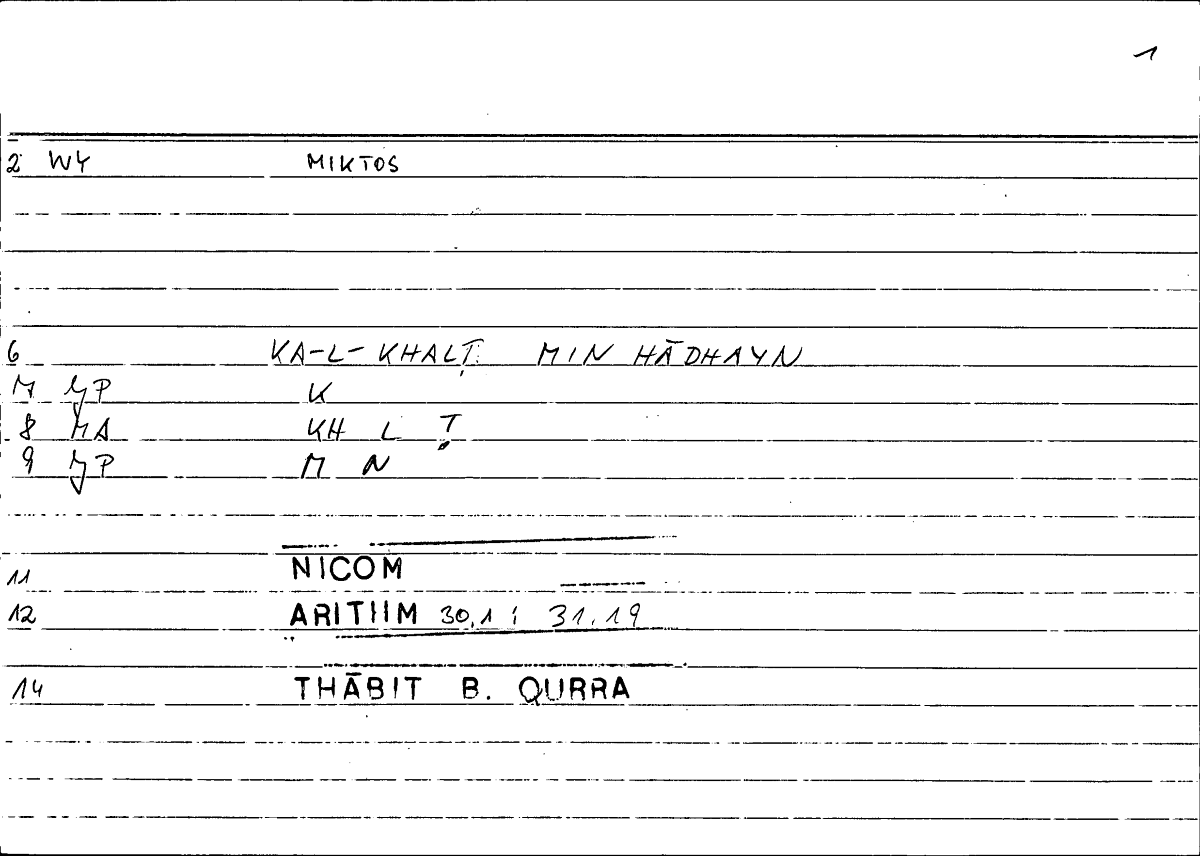 1
2 WY MIKTOS
6 KA-L-KHALṬ MIN HĀDHAYN
7 YP K
8 MA KH L Ṭ
9 YP M N
11 NICOM
12 ARITIIM 30,1; 31.19
14 THĀBIT B. QURRA